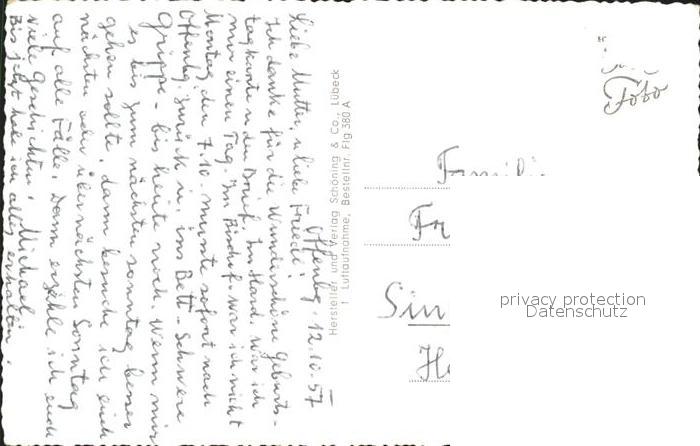 Offenbg. 12.10.57
Liebe Mutter, u. liebe Friedl!
Ich danke für die wunderschöne Geburts-
tagskarte u. den Brief. Im war ich
nur einen Tag. Im Bischof. war ich nicht
Montag den 7.10. musste sofort nach
Offenbg. zurück u. ins Bett - Schwere
Grippe - bis heute noch. Wenn mir
es bis zum nächsten Sonntag besser
gehen sollte, dann besuche ich euch
nächsten oder übernächsten Sonntag
auf alle Fälle. Dann erzähle ich euch
viele Geschichten! Michael
Bis jetzt habe ich alles erhalten.
Hersteller und Verlag Schöning & Co., Lübeck
Luftaufnahme, Bestellnr. Flg 380 A
Foto
Famili
Fr
Sin
He
privacy protection
Datenschutz